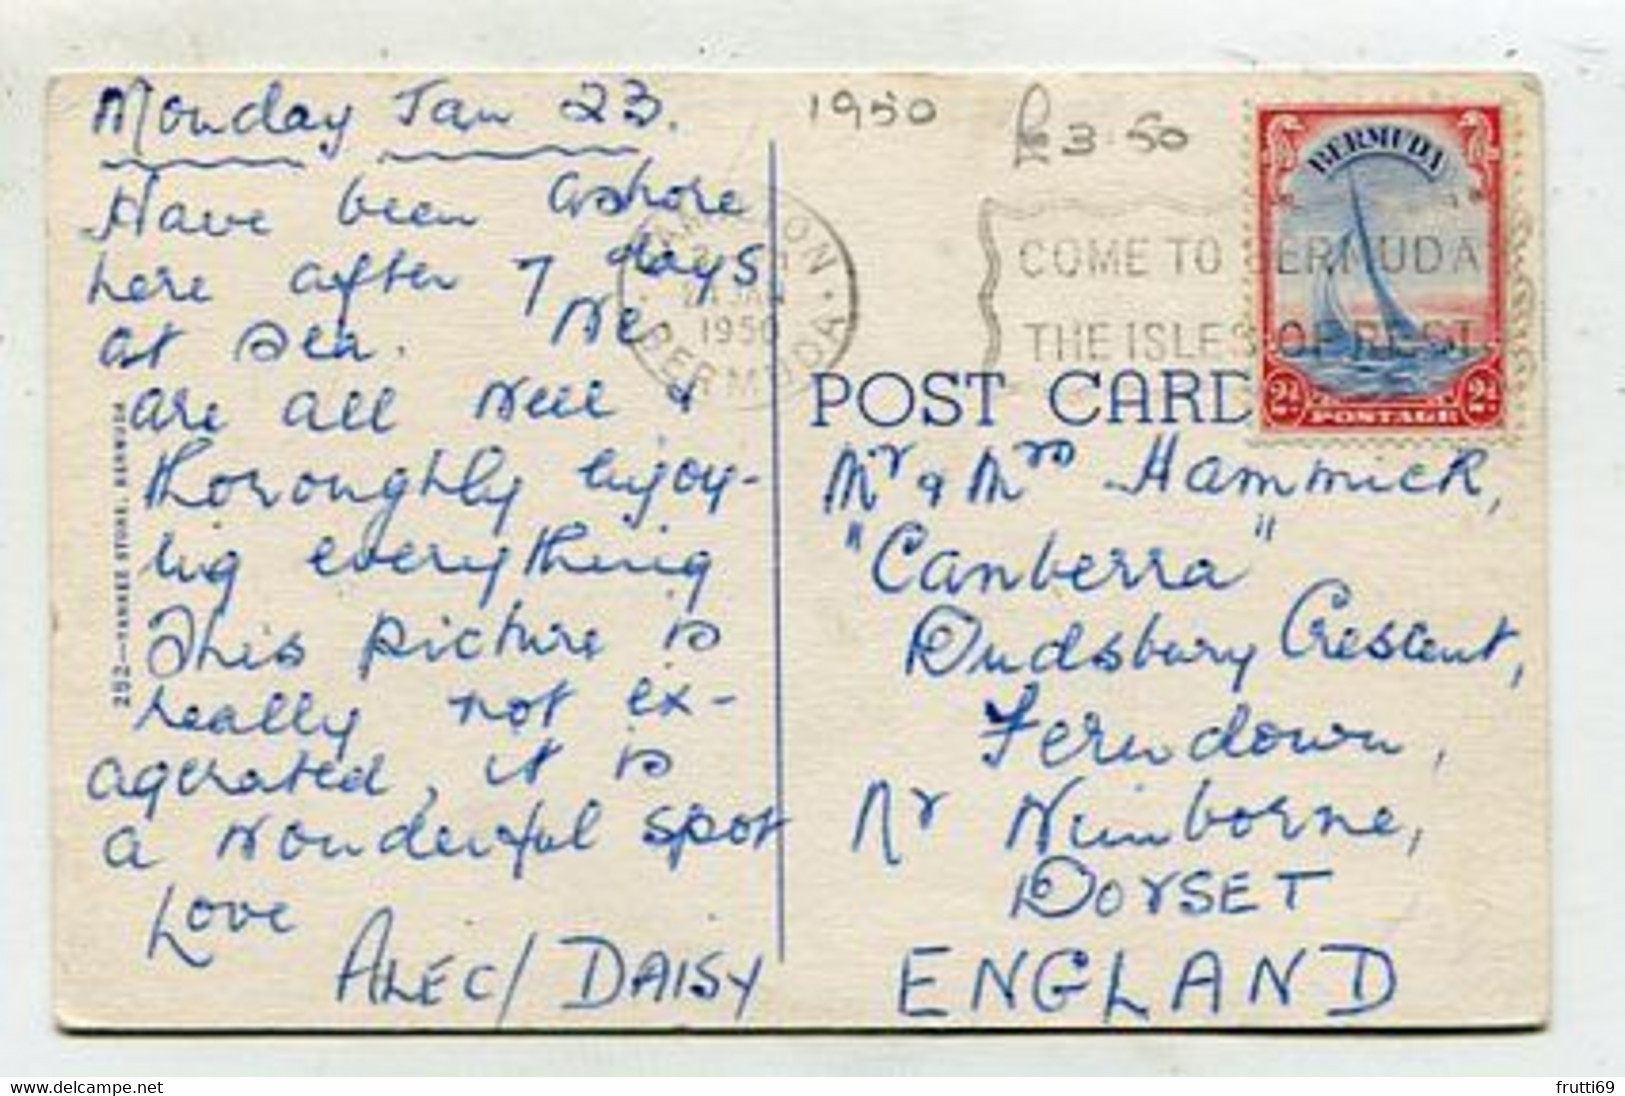 Monday Jan 23.
Have been ashore
here after 7 days
at sea. We
are all well &
thoroughly enjoy-
ing everything
This picture is
really not ex-
agerated, it is
a wonderful spot
Love
ALEC / DAISY
252—YANKEE STORE, BERMUDA
1950
3.50
HAMILTON
JAN
1950
BERMUDA
COME TO BERMUDA
THE ISLES OF REST
BERMUDA
2d POSTAGE 2d
POST CARD
Mr & Mrs Hammick,
"Canberra"
Dudsbury Crescent,
Ferndown,
Nr Wimborne,
DORSET
ENGLAND
www.delcampe.net
frutti69